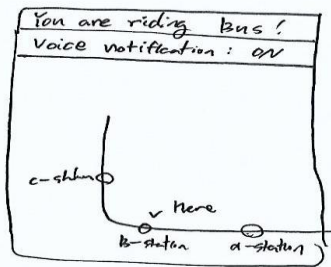 You are riding Bus !
Voice notification : ON
C-station
✓ Here
B-station
a-station